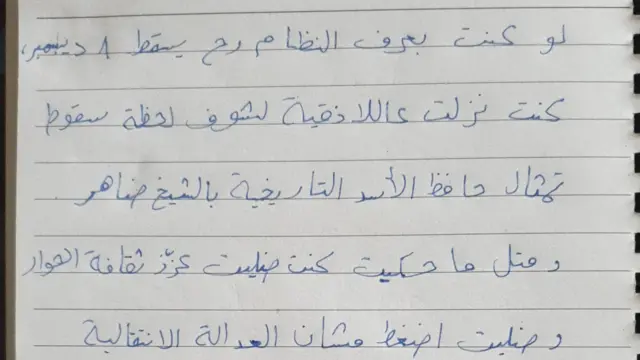 لو كنت بعرف النظام رح يسقط ٨ ديسمبر،
كنت نزلت عاللاذقية لشوف لحظة سقوط
تمثال حافظ الأسد التاريخية بالشيخ ضاهر.
ومتل ما حكيت كنت ضليت عزّز ثقافة الحوار
وضليت اضغط مشان العدالة الانتقالية